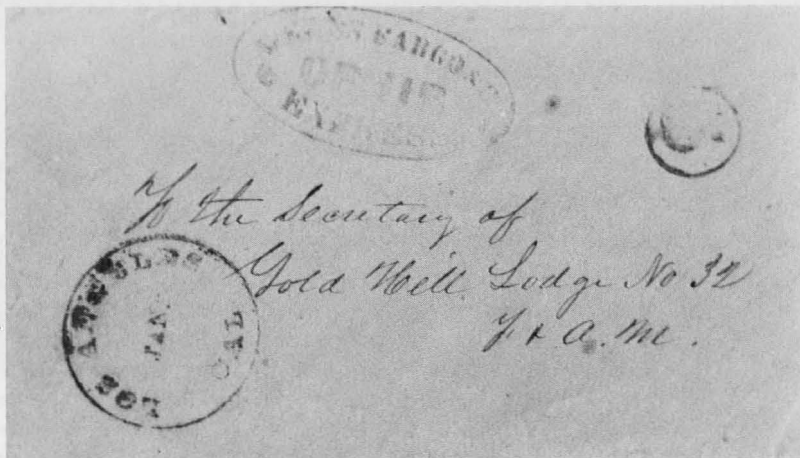 FARGO &
EXPRESS
To the Secretary of
Gold Hill Lodge No 32
F & A. M.
LOS ANGELES CAL.
JAN.